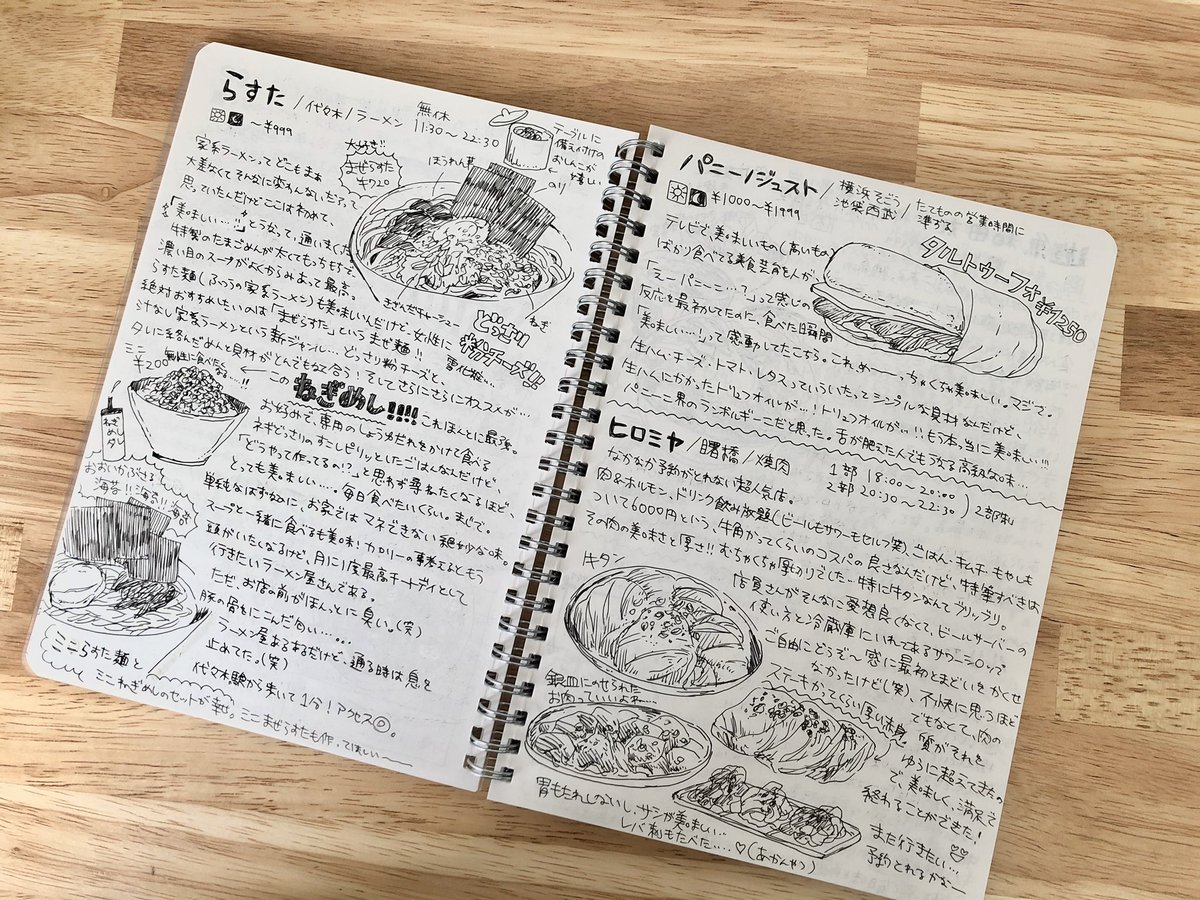 らすた / 代々木 / ラーメン
無休
11:30〜22:30
〜¥999
家系ラーメンってどこもまぁ
大差なくてそんなに変わんないだろって
思っていたんだけどここは初めて、
「美味しい…!!」となって、通いました
特製のたまごめんが太くてもっちもちで、
濃い目のスープがよくからみあって最高。
らすた麺(ふつうの家系ラーメン)も美味しいんだけど、女性に
絶対おすすめしたいのは「まぜらすた」というまぜ麺!!
汁なし家系ラーメンという新ジャンル…どっさり粉チーズと、
タレに絡んだめんと具材がとんでもなく合う!そしてさらにさらにオススメが…
この ねぎめし!!!! これほんとに最強。
お好みで、専用のしょうゆだれをかけて食べる
ネギどっさりのすこしピリッとしたごはんなんだけど、
「どうやって作ってるの!?」と思わず尋ねたくなるほど、
とっても美味しい…。毎日食べたいくらい。まじで。
単純なはずなのに、お家ではマネできない絶妙な味。
スープと一緒に食べるも美味!カロリーの事考えるともう
頭がいたくなるけど、月に1度最高チートデイとして
行きたいラーメン屋さんである。
ただ、お店の前がほんっとに臭い。(笑)
豚の骨をにこんだ匂い……
ラーメン屋あるあるだけど、通る時は息を
止めてた。(笑)
代々木駅から歩いて1分!アクセス◎。
大好き
まぜらすた
¥720
ほうれん草
テーブルに
備え付けの
おしんこが
嬉しい
のり
きざんだチャーシュー
ねぎ
どっさり
粉チーズ!!
雪化粧…
ミニ
¥200
無性に食べたくな…!!
ねぎめしタレ
おおいかぶさる
海苔!!海苔!!海苔
ミニらすた麺と
ミニねぎめしのセットが熱。ミニまぜらすたも作ってほしい〜
パニーノジュスト / 横浜そごう
池袋西武 / たてものの営業時間に
準ずる
¥1000〜¥1999
タルトゥーフォ ¥1250
テレビで、美味しいもの(高いもの
ばかり食べてる美食芸能人が、
「えーパニーニ…?」って感じの
反応を最初してたのに、食べた瞬間
「美味しい…!」って感動してたこちら。これ、めーーっちゃくちゃ美味しい。マジで。
生ハム・チーズ、トマト、レタスっていういたってシンプルな具材なんだけど、
生ハムにかかったトリュフオイルが…!トリュフオイルが…!!もう本当に美味しい…!!!
パニーニ界のランボルギーニだと思った。舌が肥えたんでもうなる高級な味…
ヒロミヤ / 曙橋 / 焼肉
1部 18:00〜20:00
2部 20:30〜22:30 ) 2部制
なかなか予約がとれない超人気店。
肉&ホルモン、ドリンク飲み放題(ビールもサワーもセルフ笑)、ごはん・キムチ・もやしも
ついて6000円という、牛角かってくらいのコスパの良さなんだけど、特筆すべきは
その肉の美味さと厚さ!!むちゃくちゃ厚切りでした…特に牛タンなんてプリップリ。
店員さんがそんなに愛想良くなくて、ビールサーバーの
使い方と冷蔵庫にいれてあるサワーシロップ
ご自由にどうぞ〜感に最初とまどいをかくせ
なかったけど(笑)、不快に思うほど
でもなくて、肉の
質がそれを
ゆうに超えてきたの
で、美味しく、満足で
終わることができた!
また行きたい…
予約とれるかなー
牛タン
銀皿にのせられた
お肉っていいよね…
ステーキかってくらい厚い赤身。
胃もたれしないし、サシが美味しい…
レバ刺もたべた….♡(あかんやつ)